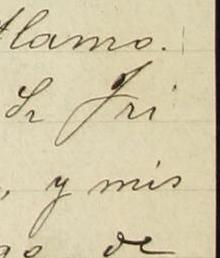 Alamo.
Sr Fri
, y mis
go de